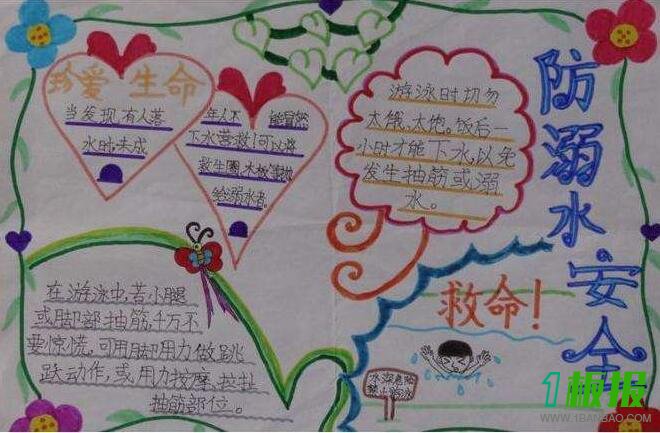 珍爱生命
当发现有人落
水时,未成
年人不能冒然
下水营救!可以将
救生圈、木板等抛
给溺水者。
游泳时切勿
太饿、太饱。饭后一
小时才能下水,以免
发生抽筋或溺
水。
防溺水安全
救命!
在游泳中,若小腿
或脚部抽筋,千万不
要惊慌,可用脚用力做跳
跃动作,或用力按摩、拉扯
抽筋部位。
1板报
WWW.1BANBAO.COM